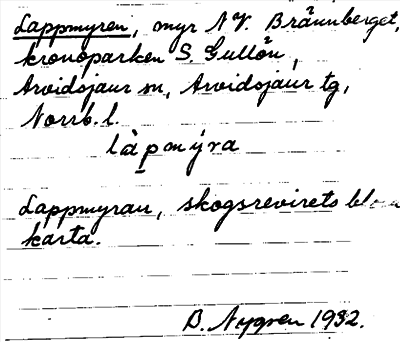 Lappmyren, myr N.V. Brännberget,
kronoparken S. Gullön,
Arvidsjaur sn, Arvidsjaur tg,
Norrb. l.
làpmýra
Lappmyran, skogsrevirets
karta.
B. Nygren 1932.